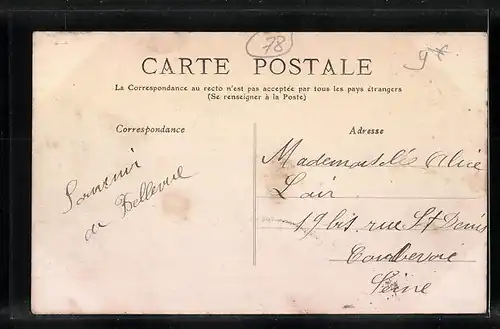 78
9*
CARTE POSTALE
La Correspondance au recto n'est pas acceptée par tous les pays étrangers
(Se renseigner à la Poste)
Correspondance
Adresse
Souvenir
de Bellevue
Mademoiselle Alice
Loir
19 bis rue St Denis
Courbevoie
Seine